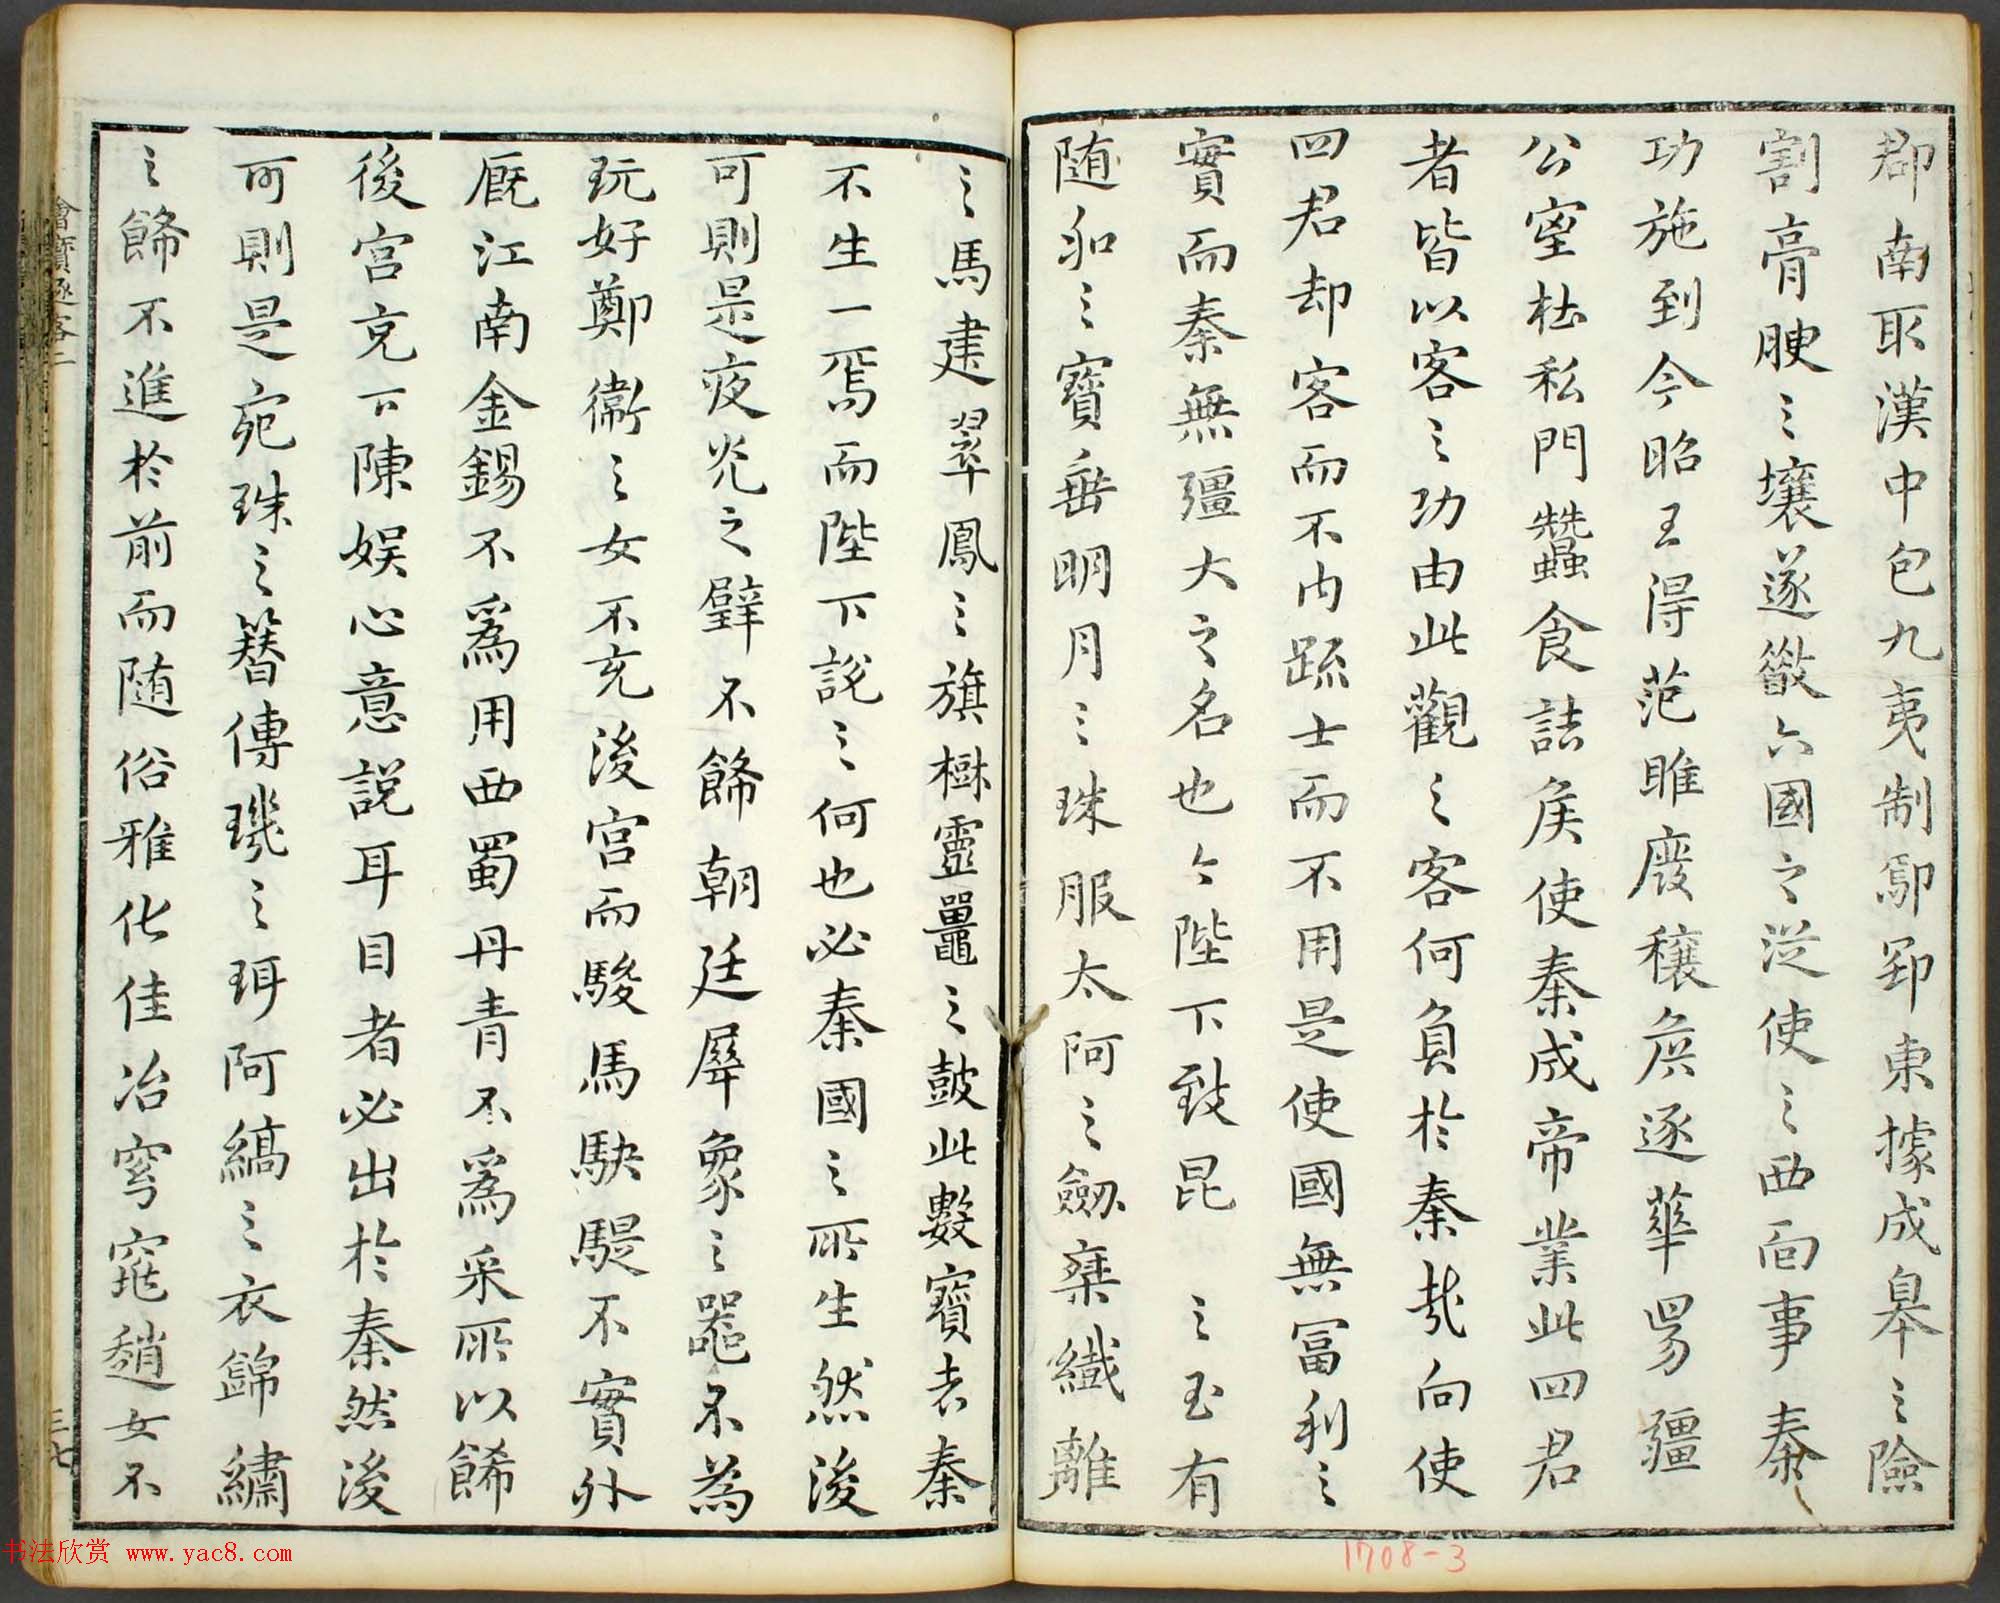 郡南取漢中包九夷制鄢郢東據成皋之險
割膏腴之壤遂散六國之從使之西面事秦
功施到今昭王得范雎廢穰侯逐華昜彊
公室杜私門蠶食諸侯使秦成帝業此四君
者皆以客之功由此觀之客何負於秦哉向使
四君却客而不內疏士而不用是使國無冨利之
實而秦無彊大之名也今陛下致昆之玉有
随和之寶垂明月之珠服太阿之劔乘纖離
之馬建翠鳳之旗樹靈鼉之鼓此數寶者秦
不生一焉而陛下說之何也必秦國之所生然後
可則是夜光之璧不飾朝廷犀象之器不為
玩好鄭衞之女不充後宮而駿馬駃騠不實外
厩江南金錫不爲用西蜀丹青不爲采所以飾
後宮充下陳娱心意說耳目者必出於秦然後
可則是宛珠之簪傅璣之珥阿縞之衣錦繡
之飾不進於前而随俗雅化佳冶窈窕趙女不
三七
1708-3
书法欣赏 www.yac8.com